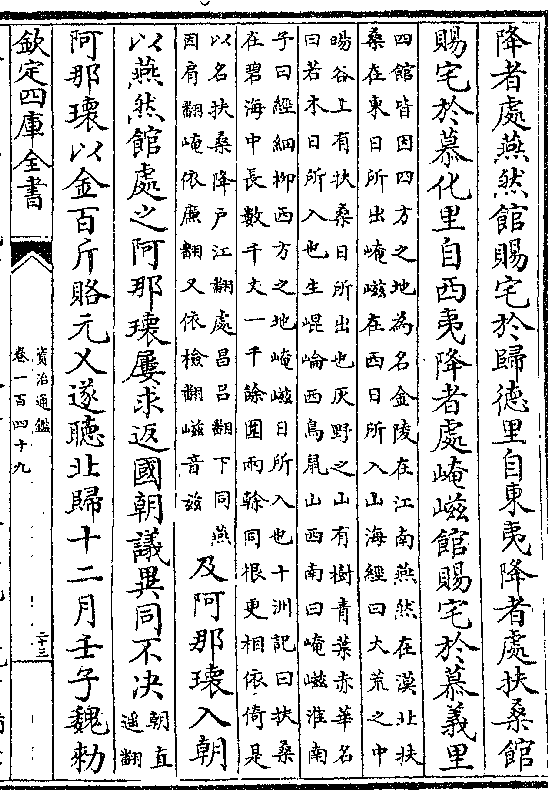 降者處燕然館賜宅於歸德里自東夷降者處扶桑館
賜宅於慕化里自西夷降者處崦嵫館賜宅於慕義里
四館皆因四方之地為名金陵在江南燕然在漠北扶
桑在東日所出崦嵫在西日所入山海經曰大荒之中
暘谷上有扶桑日所出也灰野之山有樹青葉赤華名
曰若木日所入也生崐崘西鳥鼠山西南曰崦嵫淮南
子曰經細柳西方之地崦嵫日所入也十洲記曰扶桑
在碧海中長數千丈一千餘圍兩榦同根更相依倚是
以名扶桑降戶江翻處昌呂翻下同燕
因肩翻崦依廉翻又依檢翻嵫音兹
及阿那瓌入朝
以燕然館處之阿那瓌屢求返國朝議異同不決
朝直
遥翻
阿那瓌以金百斤賂元乂遂聽北歸十二月壬子魏勑
欽定四庫全書
資治通鑑
卷一百四十九
二十三